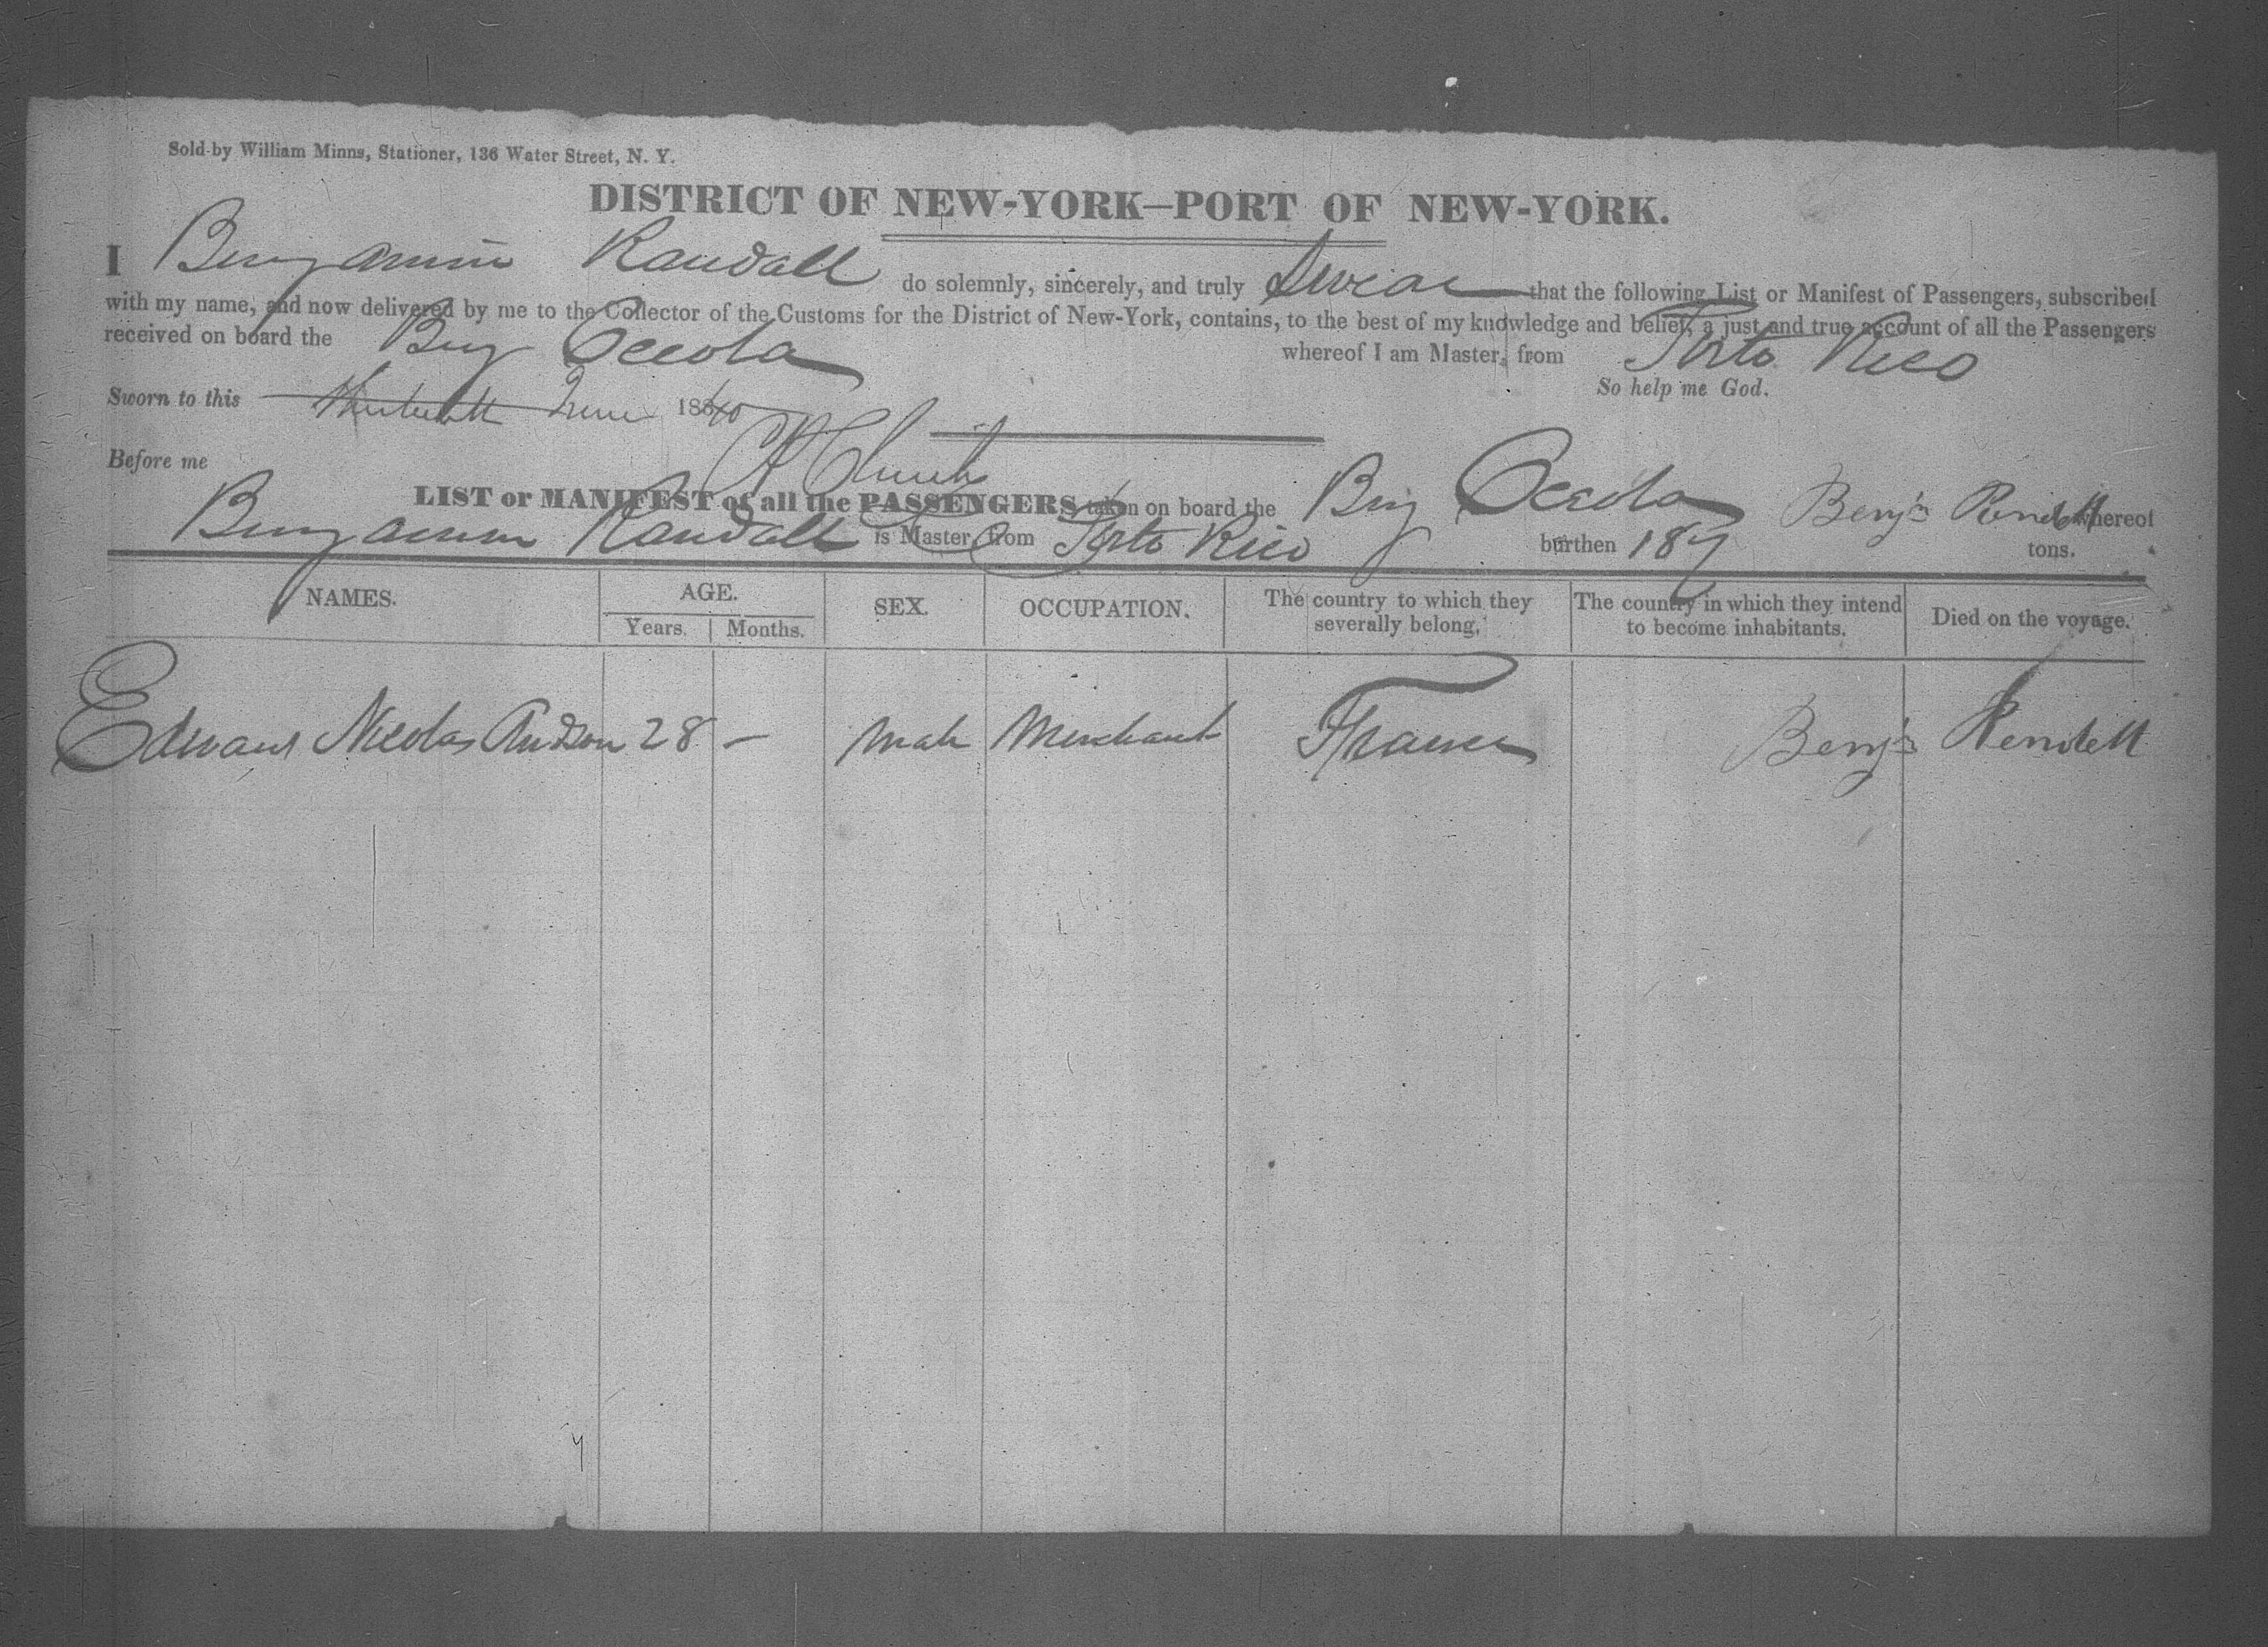 Sold by William Minns, Stationer, 136 Water Street, N. Y.
DISTRICT OF NEW-YORK—PORT OF NEW-YORK.
I Benjamin Randall do solemnly, sincerely, and truly Swear that the following List or Manifest of Passengers, subscribed
with my name, and now delivered by me to the Collector of the Customs for the District of New-York, contains, to the best of my knowledge and belief, a just and true account of all the Passengers
received on board the Brig Oceola whereof I am Master, from Porto Rico
So help me God.
Sworn to this June 1840
Before me
Benjn Rendell
LIST or MANIFEST of all the PASSENGERS taken on board the Brig Oceola whereof
Benjamin Randall is Master, from Porto Rico burthen 187 tons.
NAMES. AGE. SEX. OCCUPATION. The country to which they severally belong. The country in which they intend to become inhabitants. Died on the voyage.
Years. Months.
Edward Nicolas 28 — Male Merchant France Benjn Rendell